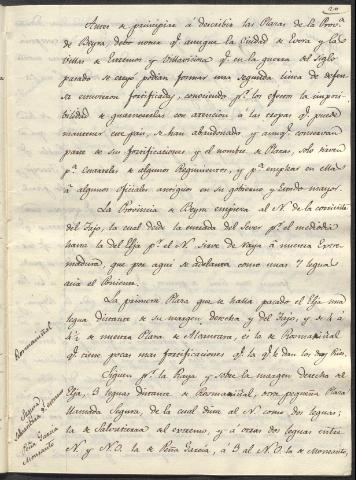 20
Antes de principiar á describir las Plazas de la Prov.ª
de Beyra, debo notar q.e aunque la Ciudad de Evora y las
villas de Extremos y Villaviciosa q.e en la guerra del Siglo
pasado se creyó podian formar una segunda linea de defen-
sa estuvieron fortificadas, conociendo p.r los efectos la imposi-
bilidad de guarnecerlas con atencion á las tropas q.e puede
mantener este pais, se han abandonado, y aunq.e conservan
parte de sus fortificaciones y el nombre de Plazas, solo sirven
p.ª Quarteles de algunos Regimientos, y p.ª emplear en ellas
á algunos oficiales antiguos en su gobierno y Estado mayor.
La Provincia de Beyra empieza al N. de la corriente
del Tajo, la cual desde la entrada del Sever p.r el mediodia
hasta la del Elja p.r el N. sirve de Raya á nuestra Extre-
madura, que por aqui se adelanta como unas 7 leguas
acia el Poniente.
La primera Plaza que se halla pasado el Elja una
legua distante de su margen derecha y del Tajo, y de 4 á
4½ de nuestra Plaza de Alcantara, es la de Rosmaniñal
q.e tiene pocas mas fortificaciones q.e la q.e le dan los dos Rios.
Siguen p.r la Raya y sobre la margen derecha del
Elja, 3 leguas distante de Rosmaniñal, otra pequeña Plaza
llamada Segura, de la cual dista al N. como dos leguas;
la de Salvatierra del extremo, y á otras dos leguas entre
N. y N.O. la de Peña Garcia, á 3 al N.O. la de Monsanto,
Rosmaniñal
Segura
Salvatierra del extremo
Peña Garcia
Monsanto